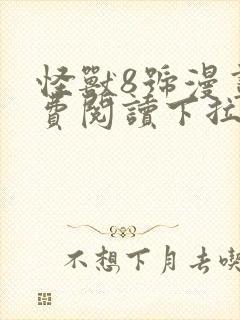 怪獸8號漫
費閱讀下拉
不想下月去